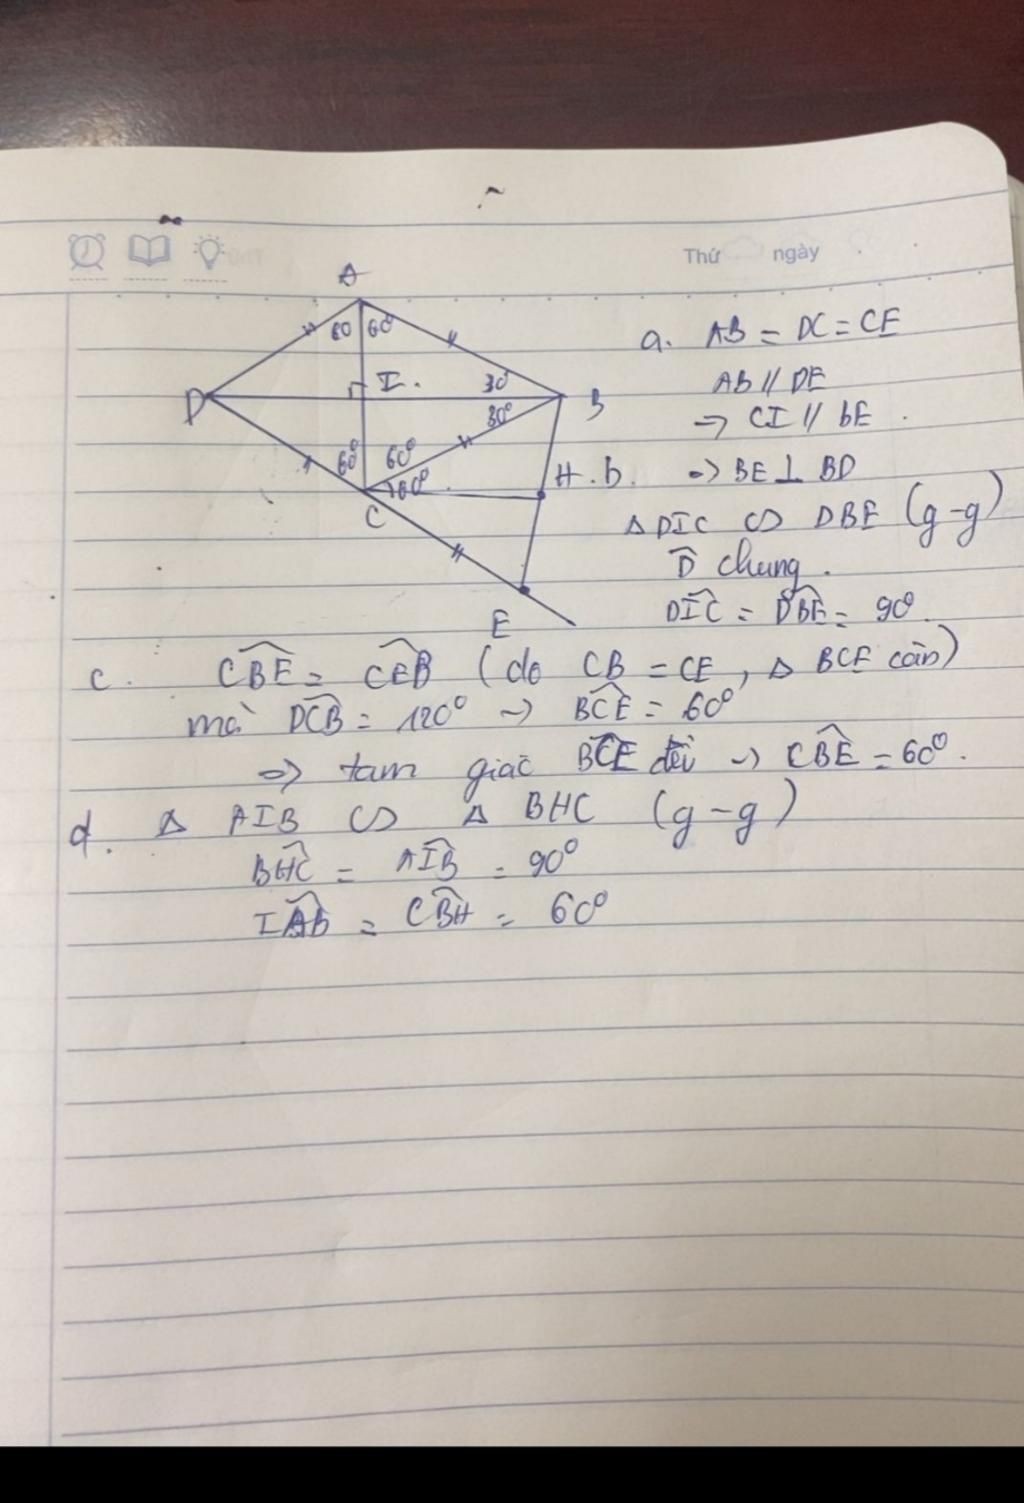 Thứ ngày
A
60 60°
I.
D
30°
B
30°
60° 60°
60°
H
C
E
a. AB = DC = CE
AB // DE
⇒ CI // bE.
b. ⇒ BE ⊥ BD
Δ DIC ∽ DBE (g-g)
D̂ chung.
DIC = DBE = 90°.
c. CBE = CEB (do CB = CE, Δ BCE cân)
mà DCB = 120° → BCE = 60°
⇒ tam giác BCE đều → CBE = 60°.
d. Δ AIB ∽ Δ BHC (g-g)
BHC = AIB = 90°
IAB = CBH = 60°